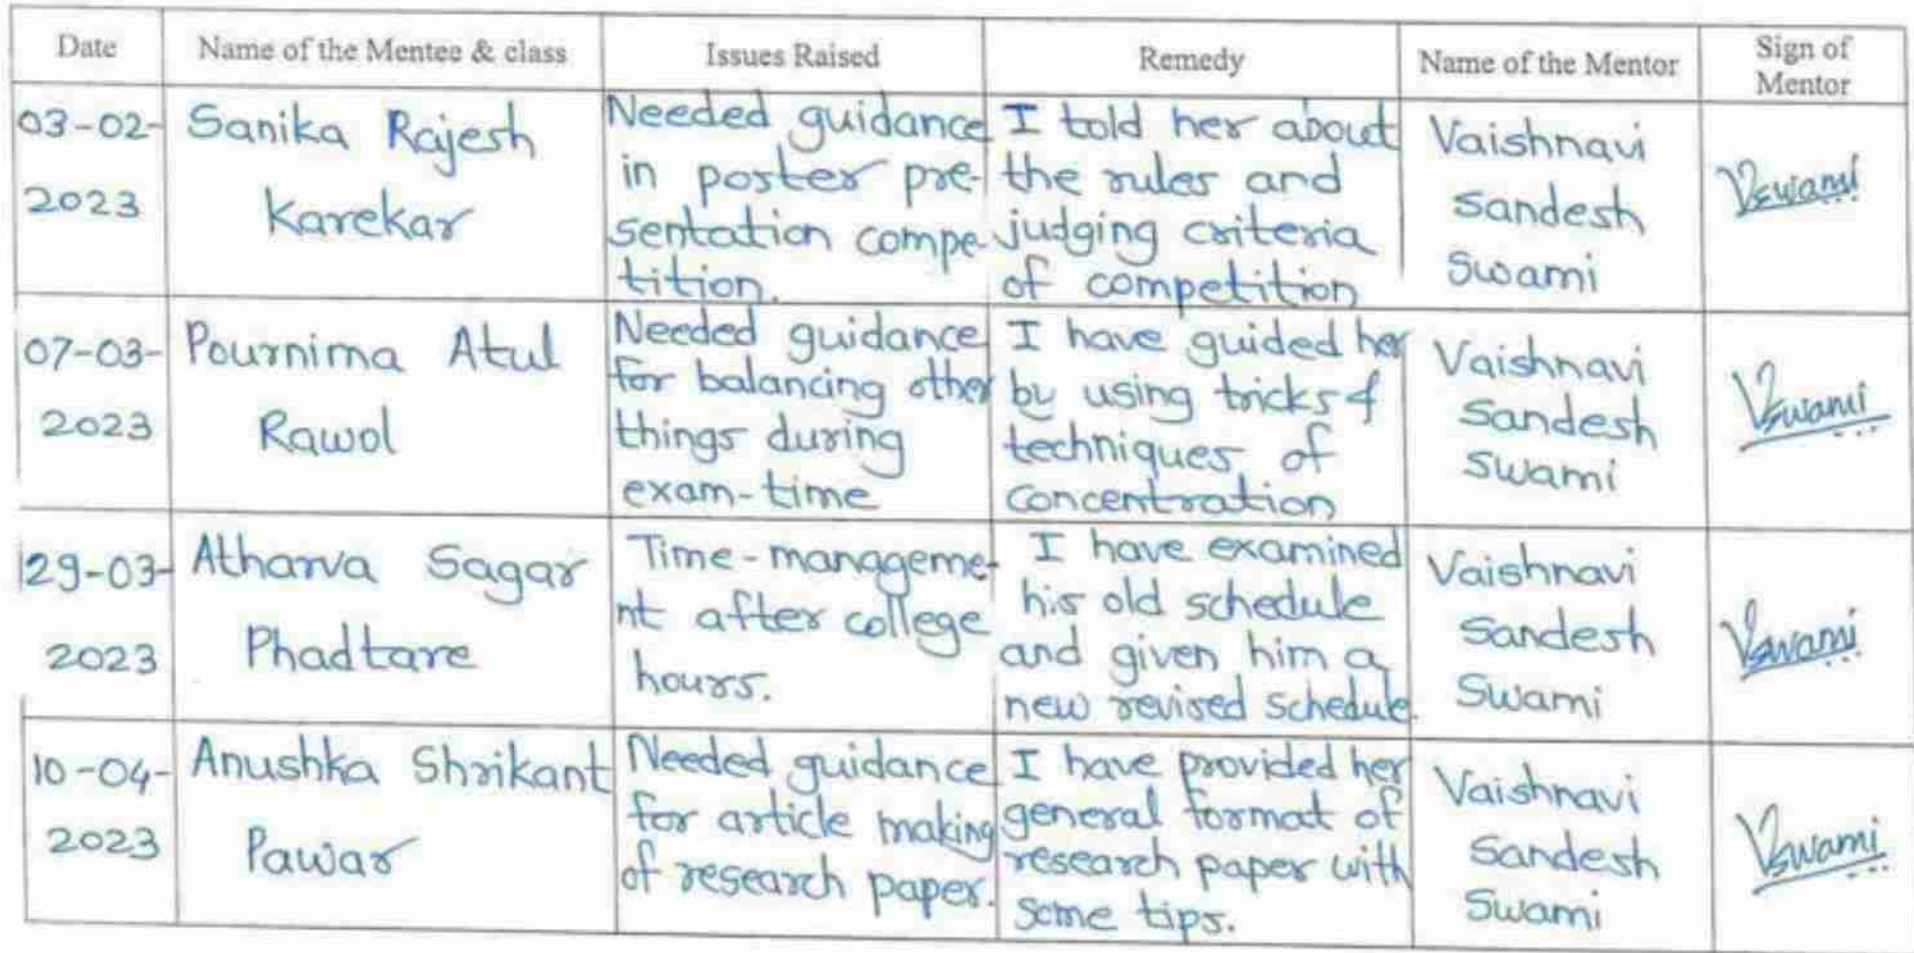 Date
Name of the Mentee & class
Issues Raised
Remedy
Name of the Mentor
Sign of
Mentor
03-02-
2023
Sanika Rajesh
Karekar
Needed guidance
in poster pre-
sentation compe-
tition.
I told her about
the rules and
judging criteria
of competition
Vaishnavi
Sandesh
Swami
VSwami
07-03-
2023
Pournima Atul
Rawol
Needed guidance
for balancing other
things during
exam-time
I have guided her
by using tricks &
techniques of
concentration
Vaishnavi
Sandesh
Swami
VSwami
29-03-
2023
Atharva Sagar
Phadtare
Time-manageme-
nt after college
hours.
I have examined
his old schedule
and given him a
new revised schedule.
Vaishnavi
Sandesh
Swami
VSwami
10-04-
2023
Anushka Shrikant
Pawar
Needed guidance
for article making
of research paper.
I have provided her
general format of
research paper with
some tips.
Vaishnavi
Sandesh
Swami
VSwami